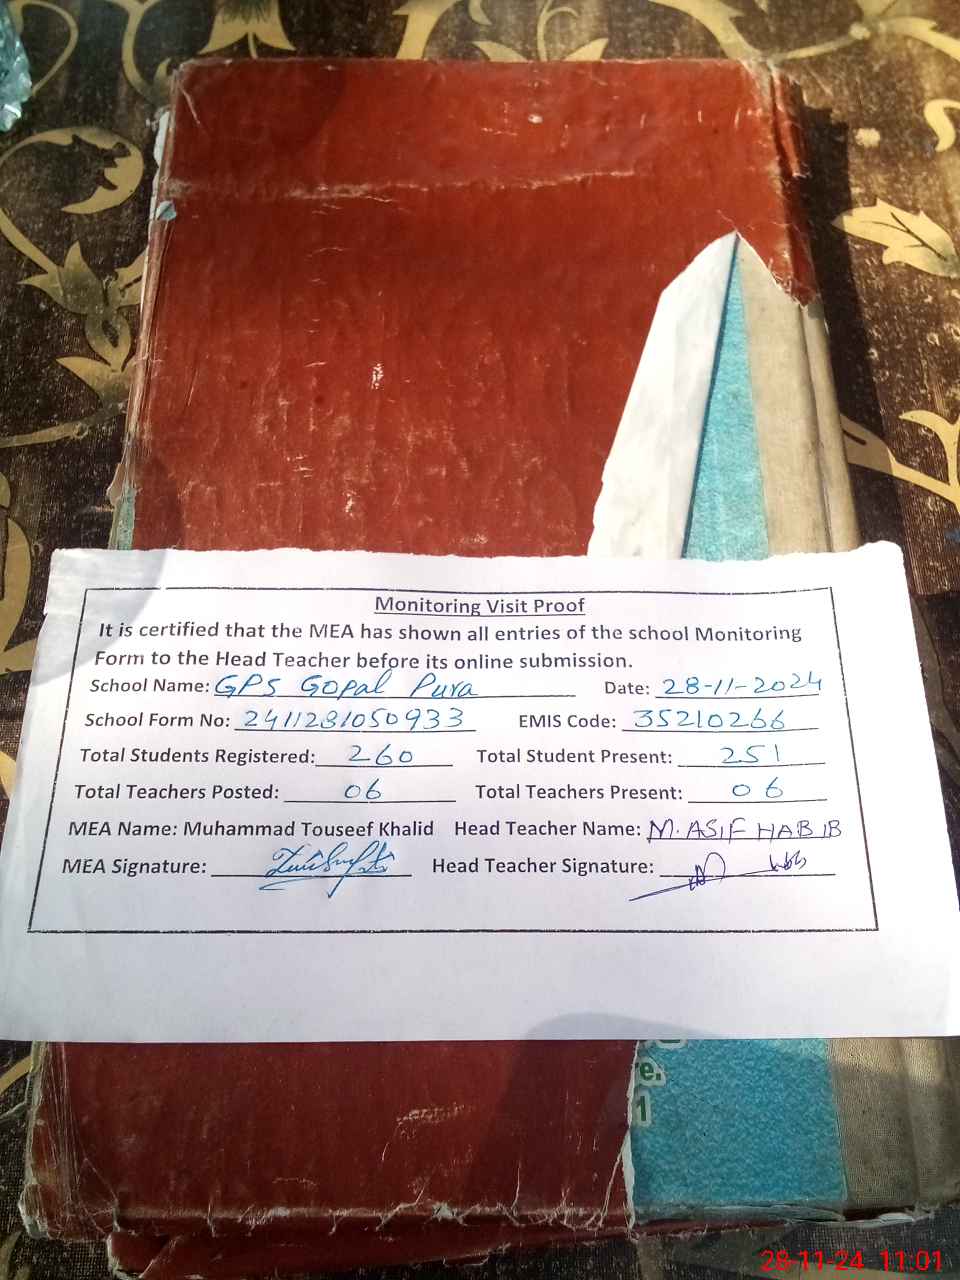 Monitoring Visit Proof
It is certified that the MEA has shown all entries of the school Monitoring
Form to the Head Teacher before its online submission.
School Name: GPS Gopal Pura Date: 28-11-2024
School Form No: 2411281050933 EMIS Code: 35210266
Total Students Registered: 260 Total Student Present: 251
Total Teachers Posted: 06 Total Teachers Present: 06
MEA Name: Muhammad Touseef Khalid Head Teacher Name: M. ASIF HABIB
MEA Signature: Head Teacher Signature:
e.
1
28-11-24 11:01